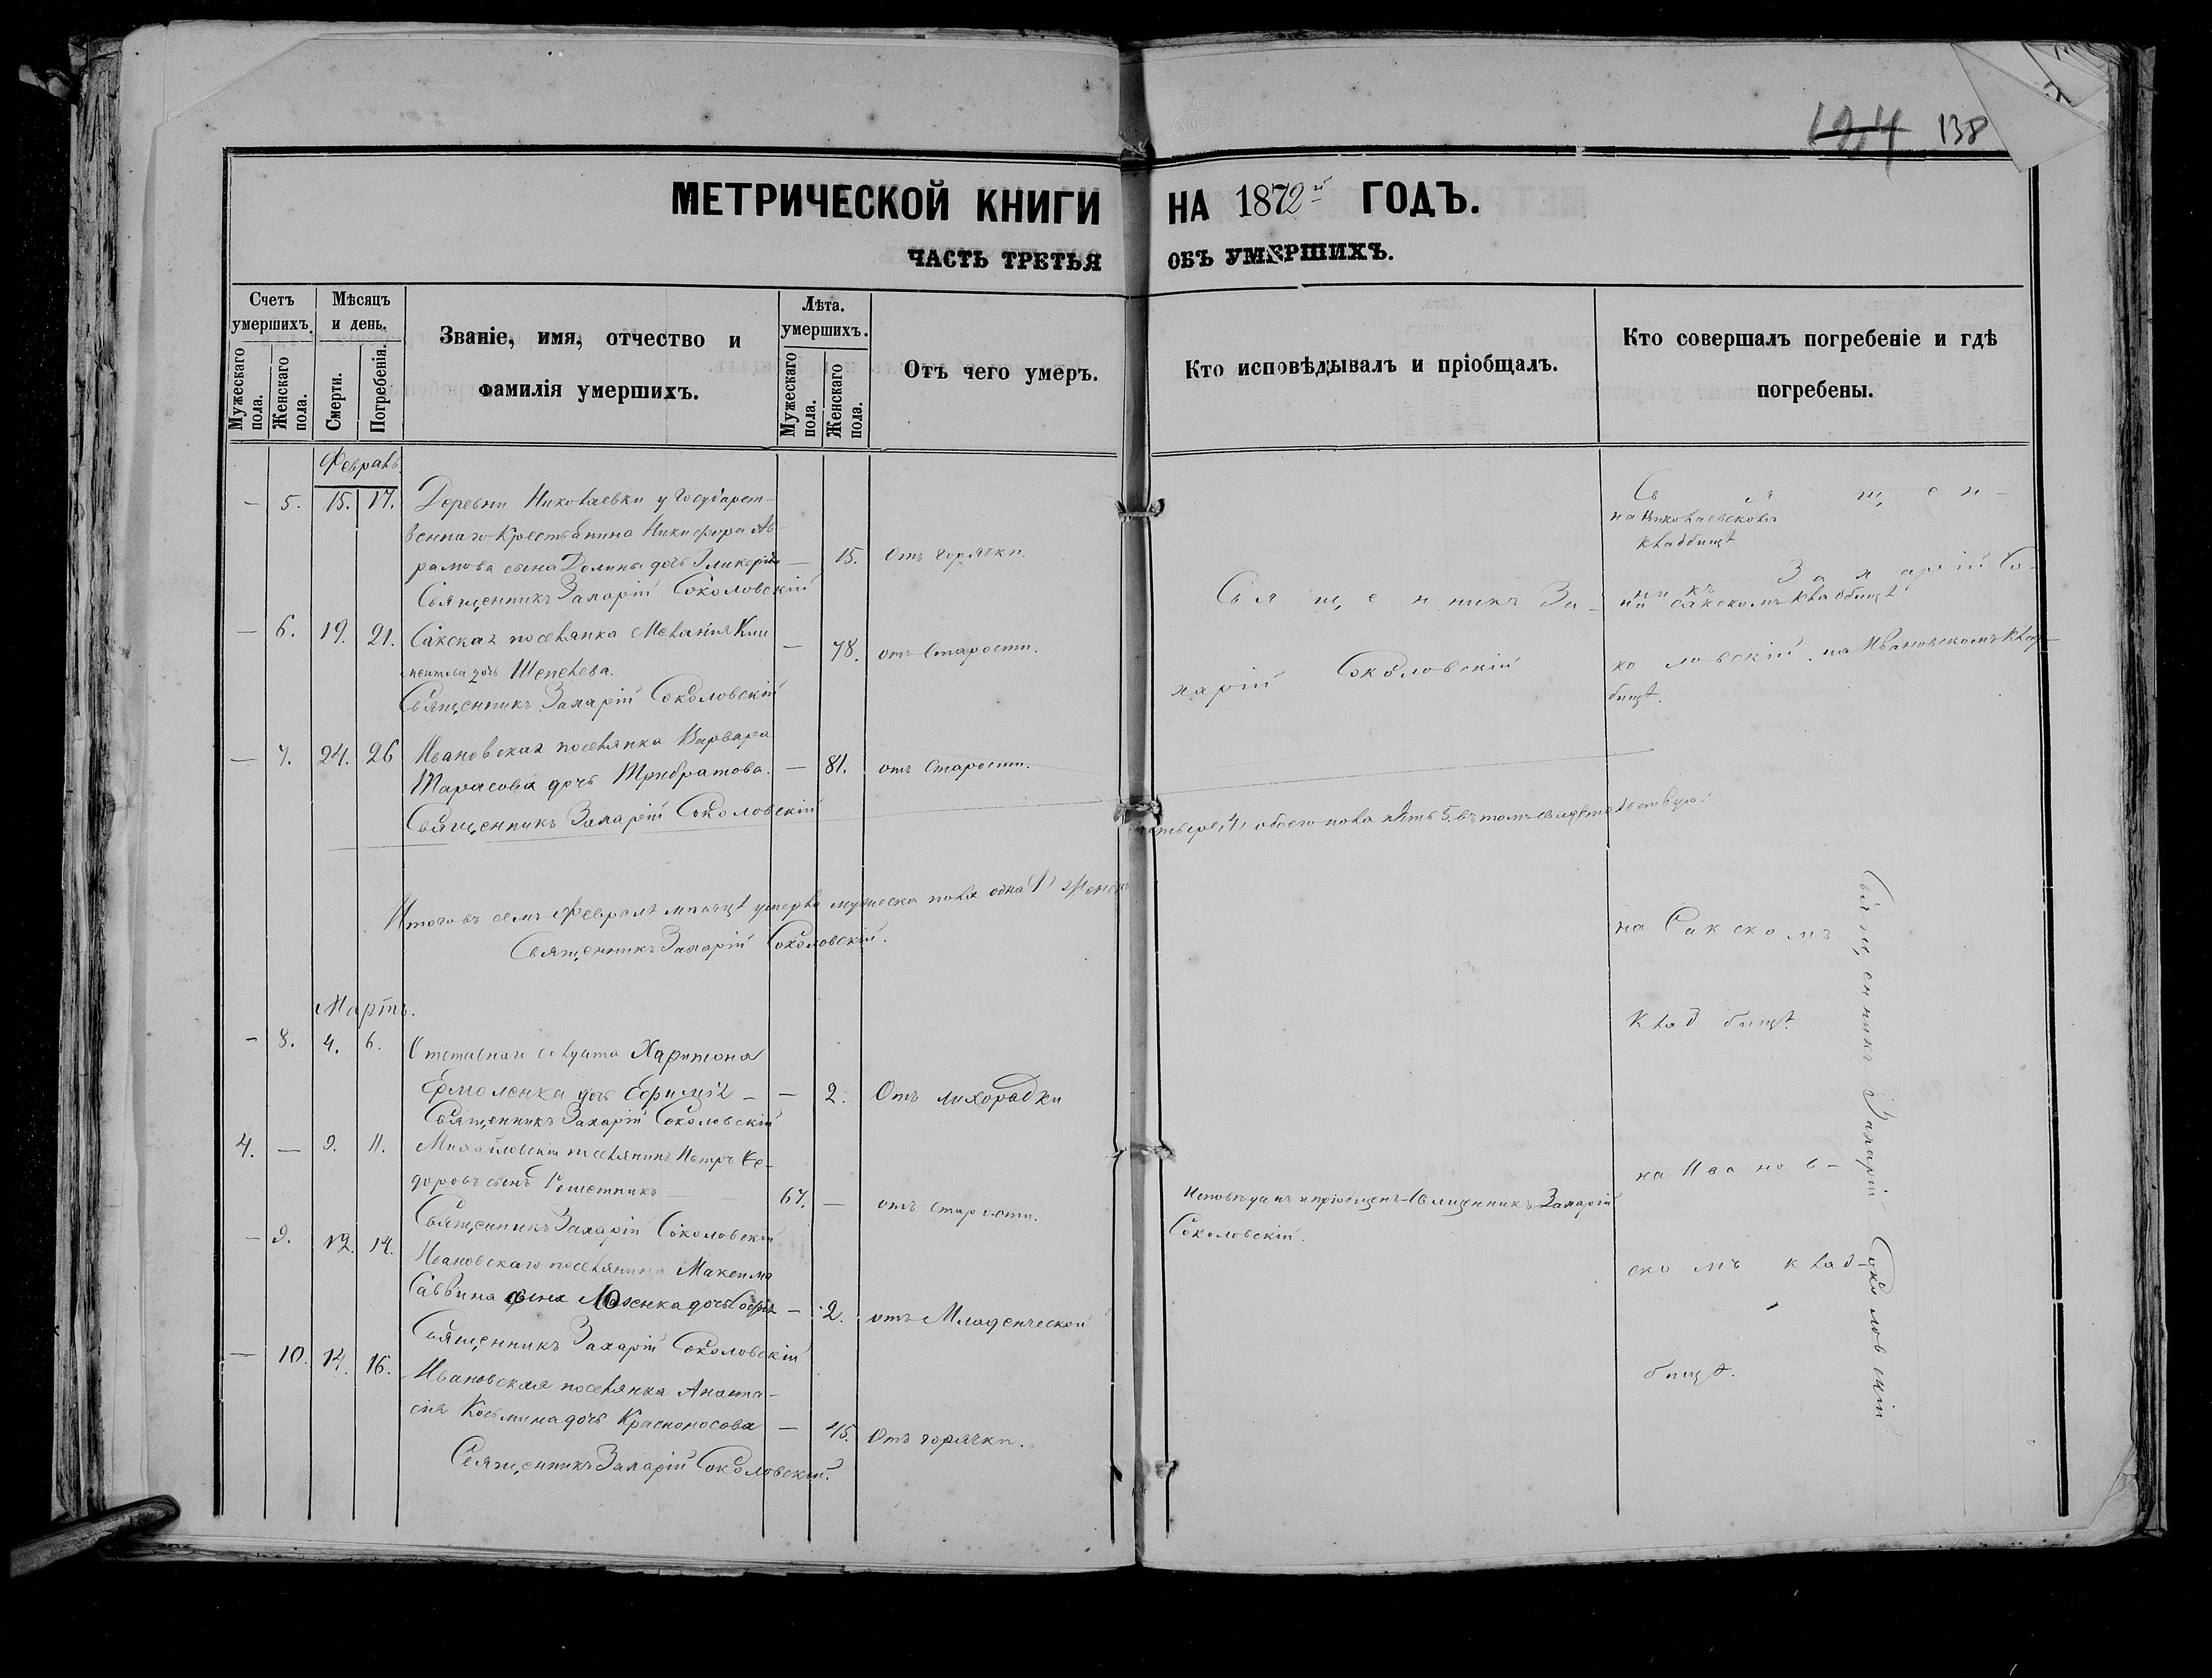 124 138
МЕТРИЧЕСКОЙ КНИГИ НА 1872й ГОДЪ.
ЧАСТЬ ТРЕТЬЯ ОБЪ УМЕРШИХЪ.
Счетъ умершихъ.
Мужескаго пола.
Женскаго пола.
Мѣсяцъ и день.
Смерти.
Погребенія.
Званіе, имя, отчество и
фамилія умершихъ.
Лѣта. умершихъ.
Мужескаго пола.
Женскаго пола.
Отъ чего умеръ.
Кто исповѣдывалъ и пріобщалъ.
Кто совершалъ погребеніе и гдѣ
погребены.
Февраль.
— 5. 15. 17. Деревни Николаевки у Государст-
веннаго Крестьянина Никифора Ав-
рамова сына Долины дочь Гликерія — 15. Отъ горячки.
Священникъ Захарій Соколовскій
— 6. 19. 21. Сакская поселянка Меланія Кли
ментова дочь Шепелева. — 78. отъ Старости.
Священникъ Захарій Соколовскій
— 7. 24. 26 Ивановская поселянка Варвара
Тарасова дочь Трибратова. — 81. отъ Старости.
Священникъ Захарій Соколовскій
Священникъ За-
харій Соколовскій
Священ-
на Николаевскомъ
кладбищѣ
никъ Захарій Со-
на Сакскомъ кладбищѣ
коловскій. на Ивановскомъ клад-
бищѣ.
Итого въ семъ Февралѣ мѣсяцѣ умерло мужеска пола одна 1) Женска
четыре, 4, обоего пола пять 5. въ томъ свидѣтельствую:
Священникъ Захарій Соколовскій.
Мартъ.
— 8. 4. 6. Отставнаго солдата Харитона
Ермоленка дочь Ефимія — — 2. Отъ лихорадки
Священникъ Захарій Соколовскій
4. — 9. 11. Михайловскій поселянинъ Петръ Ѳе-
доровъ сынъ Решетникъ 67. — отъ старости.
Священникъ Захарій Соколовскій
Исповѣдалъ и пріобщенъ Священникъ Захарій
Соколовскій.
— 9. 12. 14. Ивановскаго поселянина Максима
Саввина сына Люленка дочь Софія — 2. отъ Младенческой
Священникъ Захарій Соколовскій
— 10. 14. 16. Ивановская поселянка Анаста-
сія Косьмина дочь Красноносова — 45. Отъ горячки.
Священникъ Захарій Соколовскій.
на Сакскомъ
кладбищѣ.
на Иванов-
скомъ клад-
бищѣ.
Священникъ Захарій Соколовскій